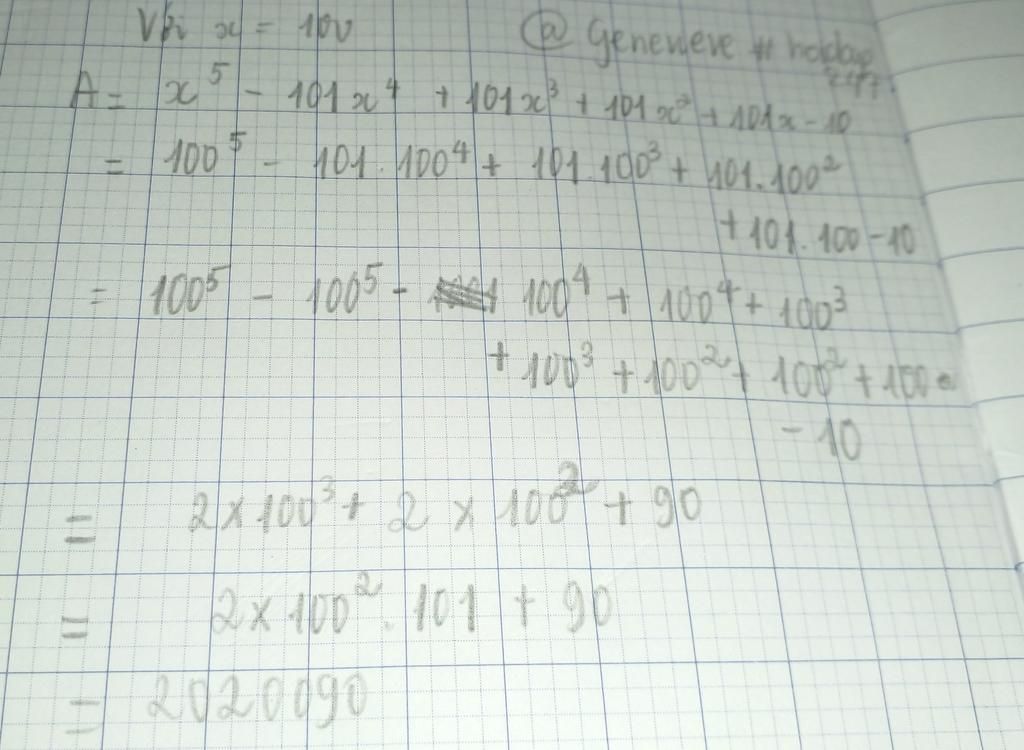 Với x = 100
@ Genevieve # hoidap
247.
A = x⁵ - 101x⁴ + 101x³ + 101x² + 101x - 10
= 100⁵ - 101.100⁴ + 101.100³ + 101.100²
+ 101.100 - 10
= 100⁵ - 100⁵ - 100⁴ + 100⁴ + 100³
+ 100³ + 100² + 100² + 100
- 10
= 2 x 100³ + 2 x 100² + 90
= 2 x 100² . 101 + 90
= 2020090